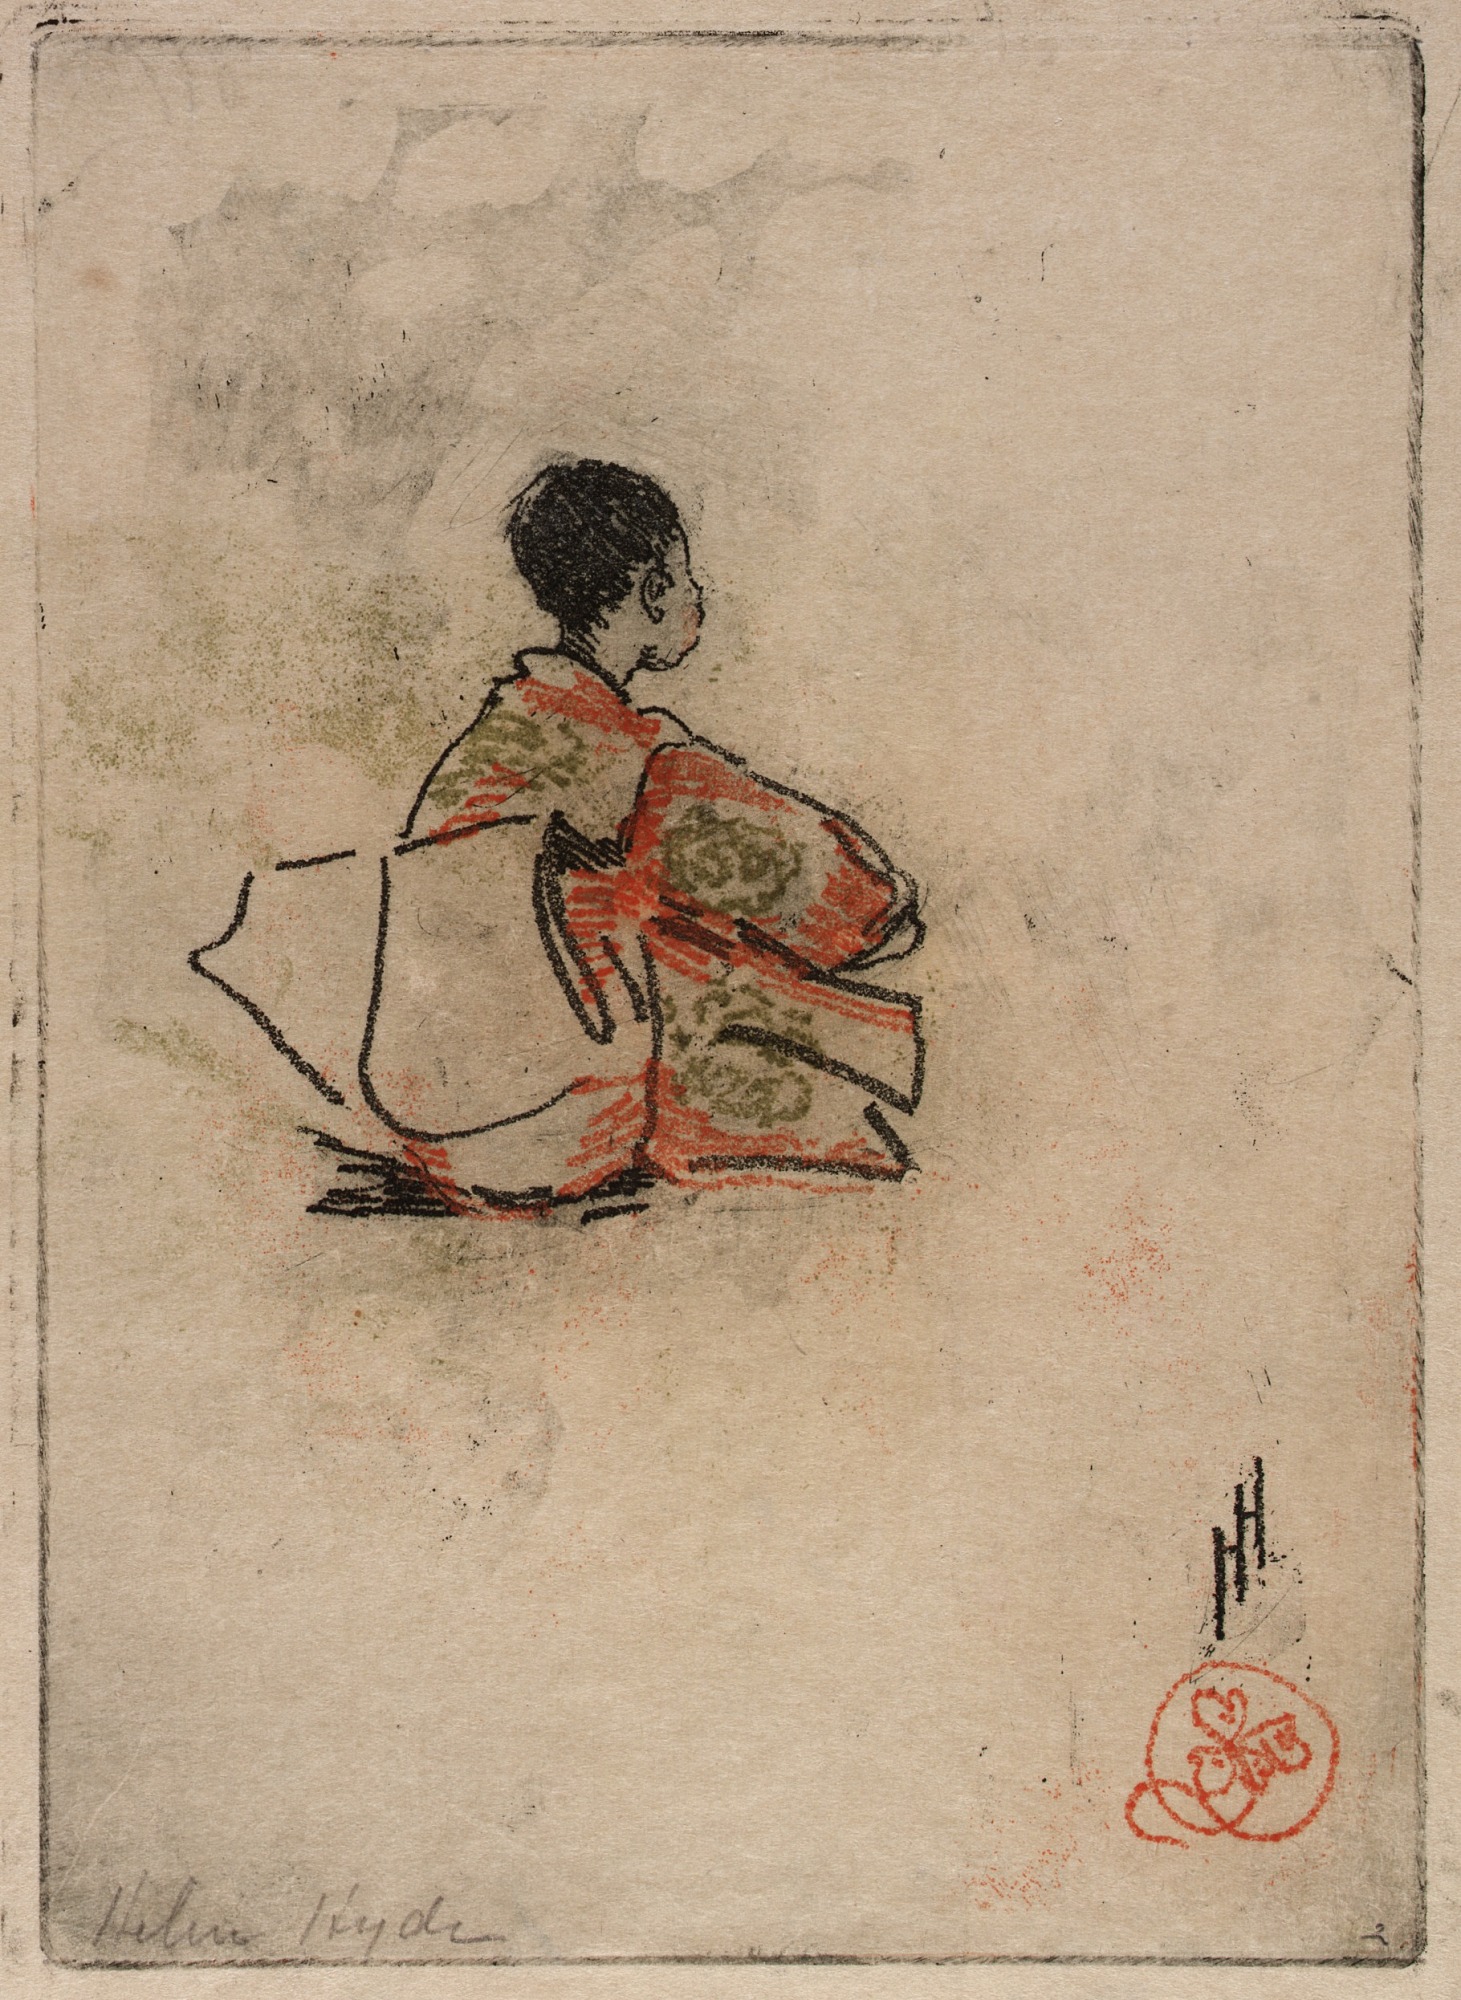 HH
Helen Hyde
2